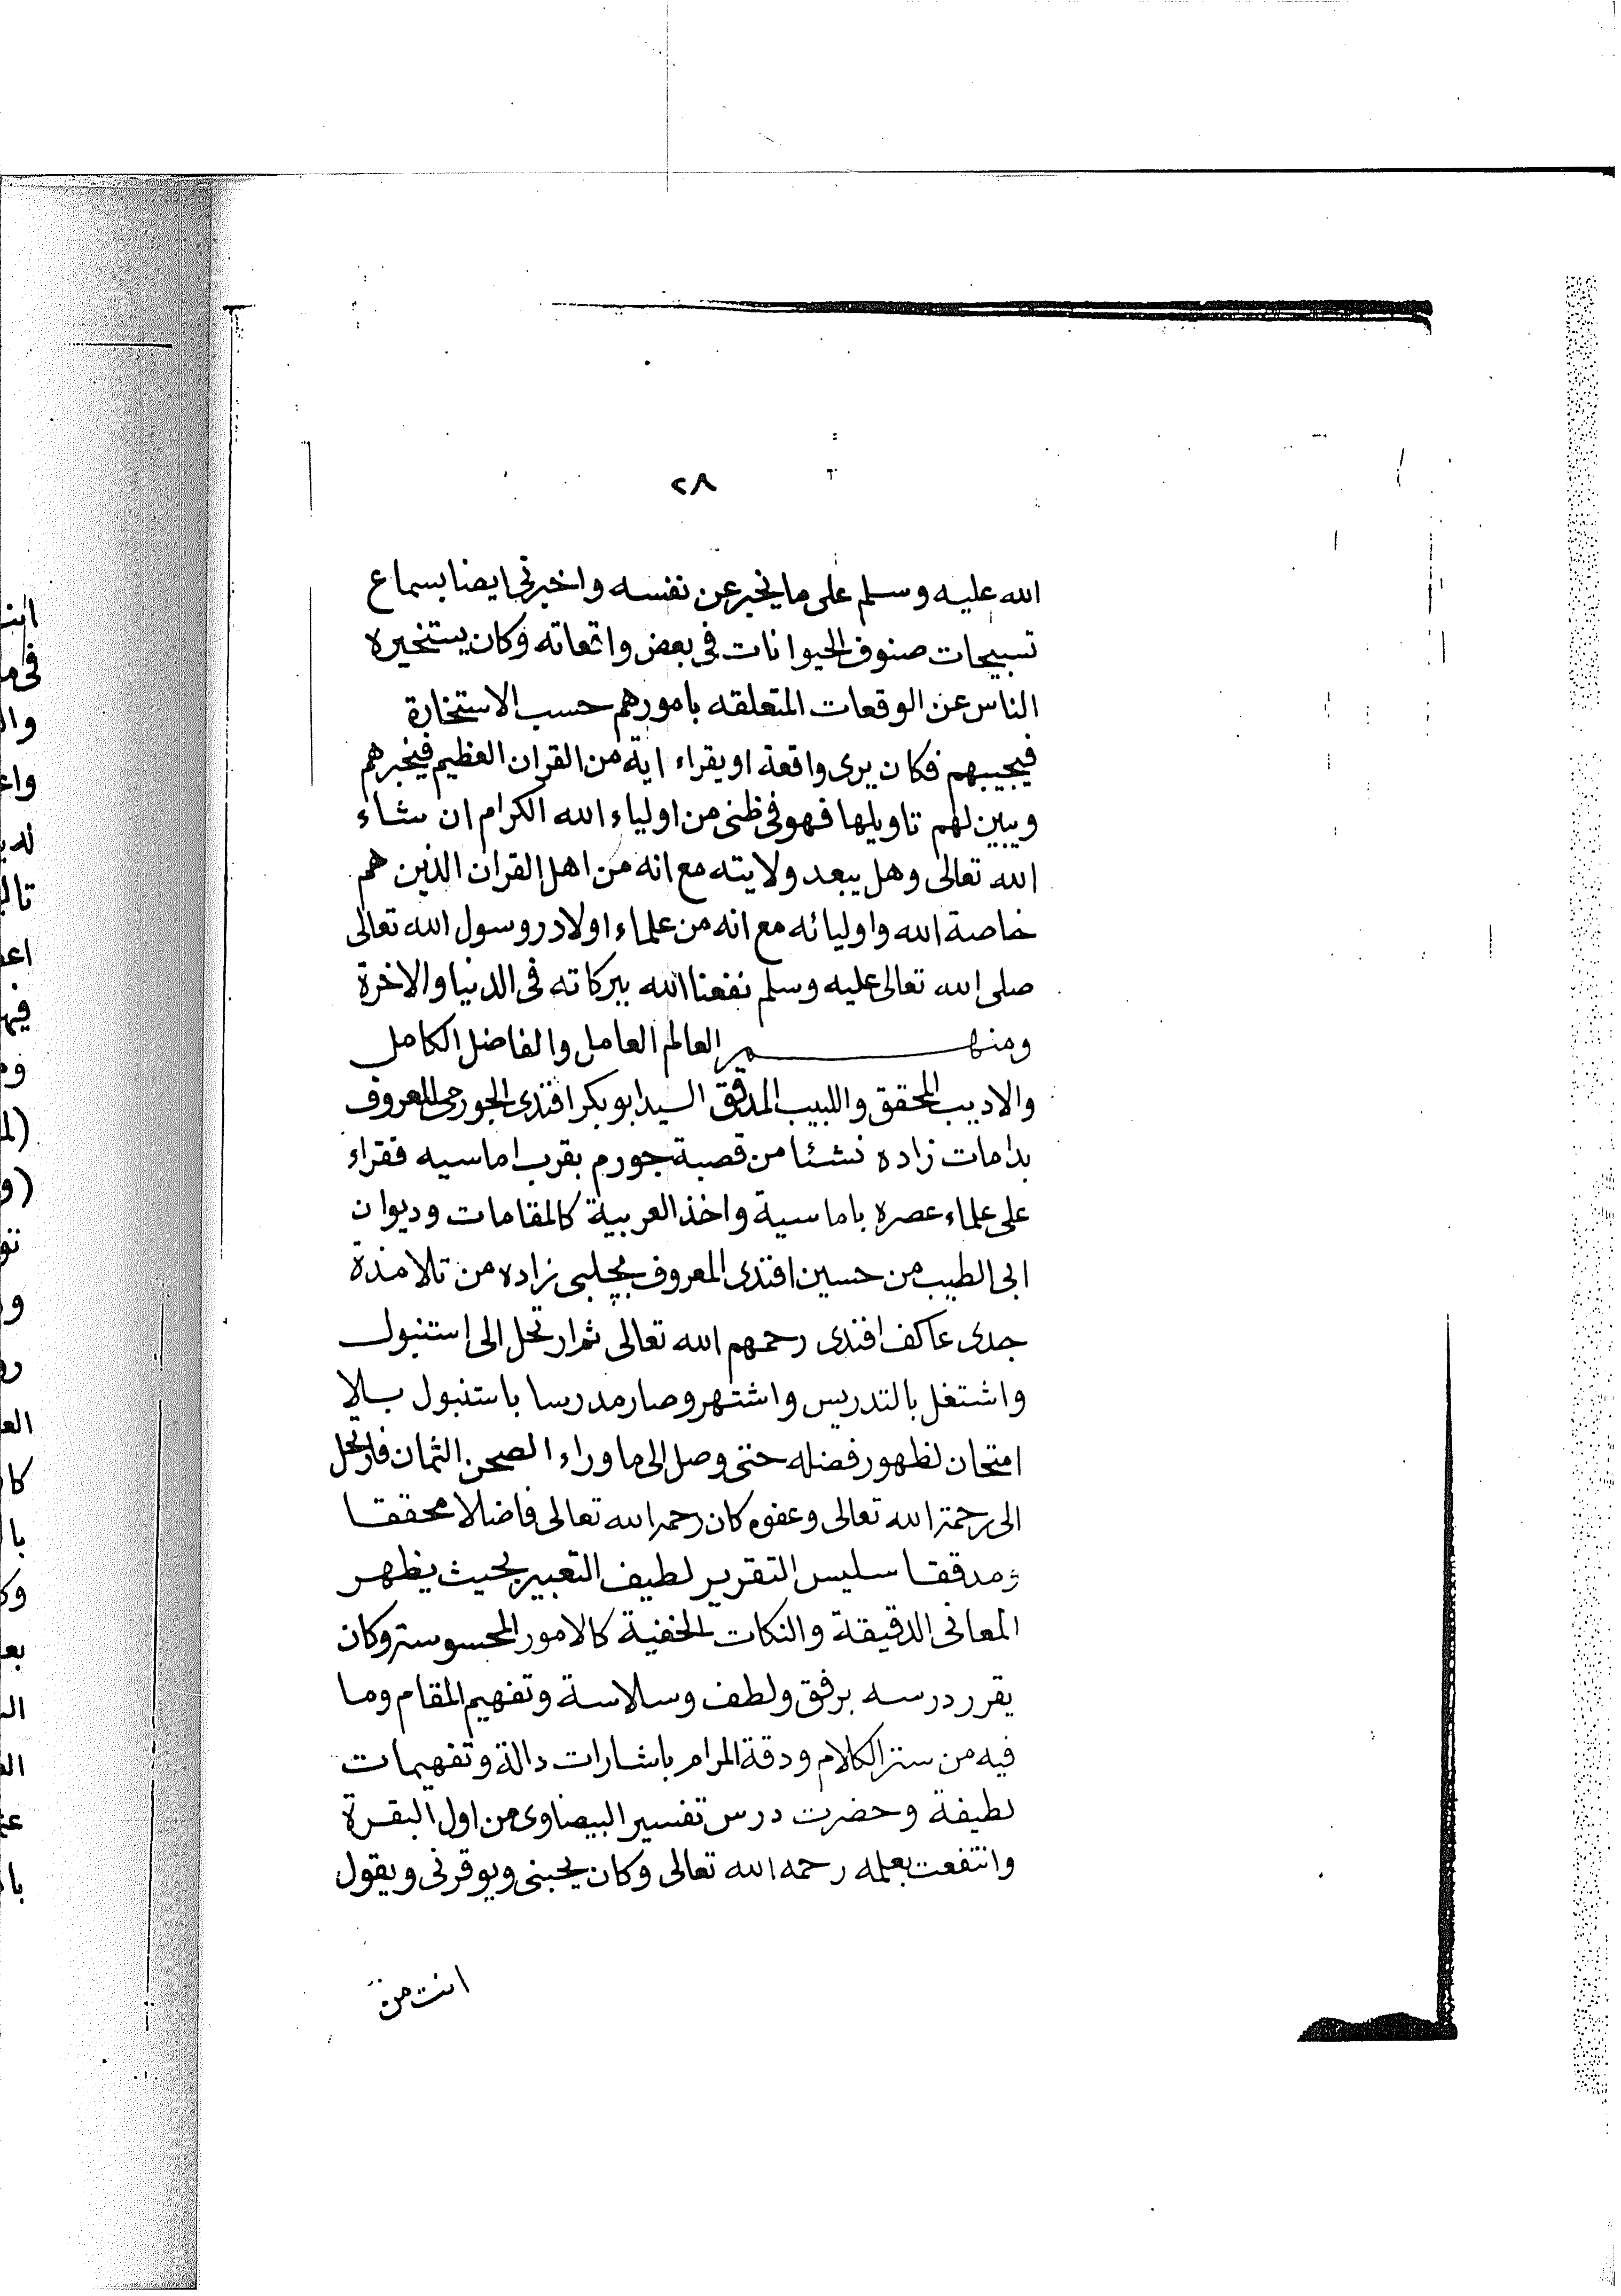 ٢٨
الله عليه وسلم على ما يخبر عن نفسه واخبرنى ايضا بسماع
تسبيحات صنوف الحيوانات فى بعض واقعاته وكان يستخيره
الناس عن الوقعات المتعلقه بامورهم حسب الاستخارة
فيجيبهم فكان يرى واقعة او يقراء اية من القران العظيم فيخبرهم
ويبين لهم تاويلها فهو فى ظنى من اولياء الله الكرام ان شاء
الله تعالى وهل يبعد ولايته مع انه من اهل القران الذين هم
خاصة الله واوليائه مع انه من علماء اولاد رسول الله تعالى
صلى الله تعالى عليه وسلم نفعنا الله ببركاته فى الدنيا والاخرة
ومنهم العالم العامل والفاضل الكامل
والاديب المحقق واللبيب المدقق السيد ابو بكر افندى الجورمى المعروف
بدامات زاده نشئا من قصبة جورم بقرب اماسيه فقراء
على علماء عصره باماسية واخذ العربية كالمقامات وديوان
ابى الطيب من حسين افندى المعروف بچلبى زاده من تلامذة
جدى عاكف افندى رحمهم الله تعالى ثم ارتحل الى استنبول
واشتغل بالتدريس واشتهر وصار مدرسا باستنبول بلا
امتحان لظهور فضله حتى وصل الى ما وراء الصحن الثمان فارتحل
الى رحمة الله تعالى وعفوه كان رحمه الله تعالى فاضلا محققا
ومدققا سليس التقرير لطيف التعبير بحيث يظهر
المعانى الدقيقة والنكات الخفية كالامور المحسوسة وكان
يقرر درسه برفق ولطف وسلاسة وتفهيم المقام وما
فيه من ستر الكلام ودقة المرام باشارات دالة وتفهيمات
لطيفة وحضرت درس تفسير البيضاوى من اول البقرة
وانتفعت بعلمه رحمه الله تعالى وكان يحبنى ويوقرنى ويقول
انت من